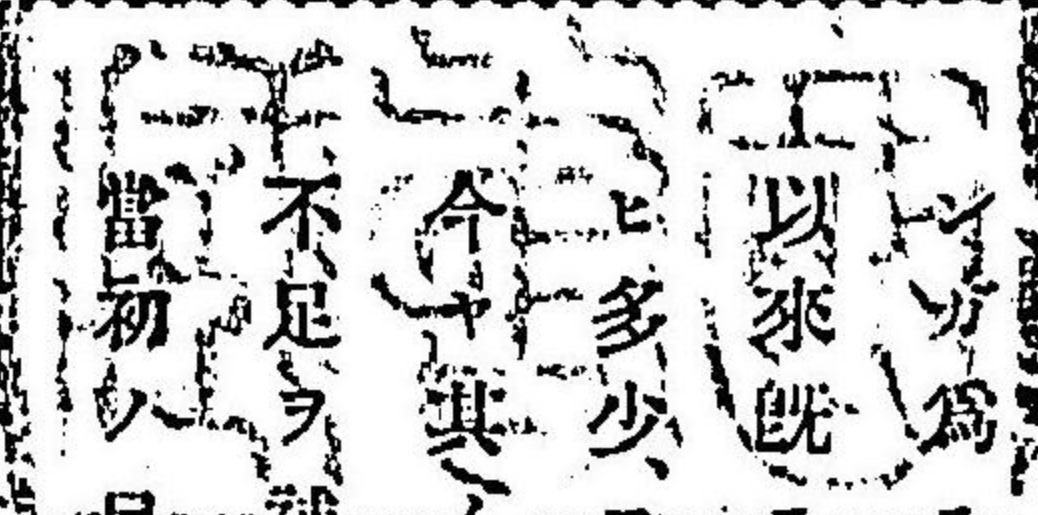 ンガ爲
以來既
ヒ多少
今ヤ其
不足ヲ
當初ノ